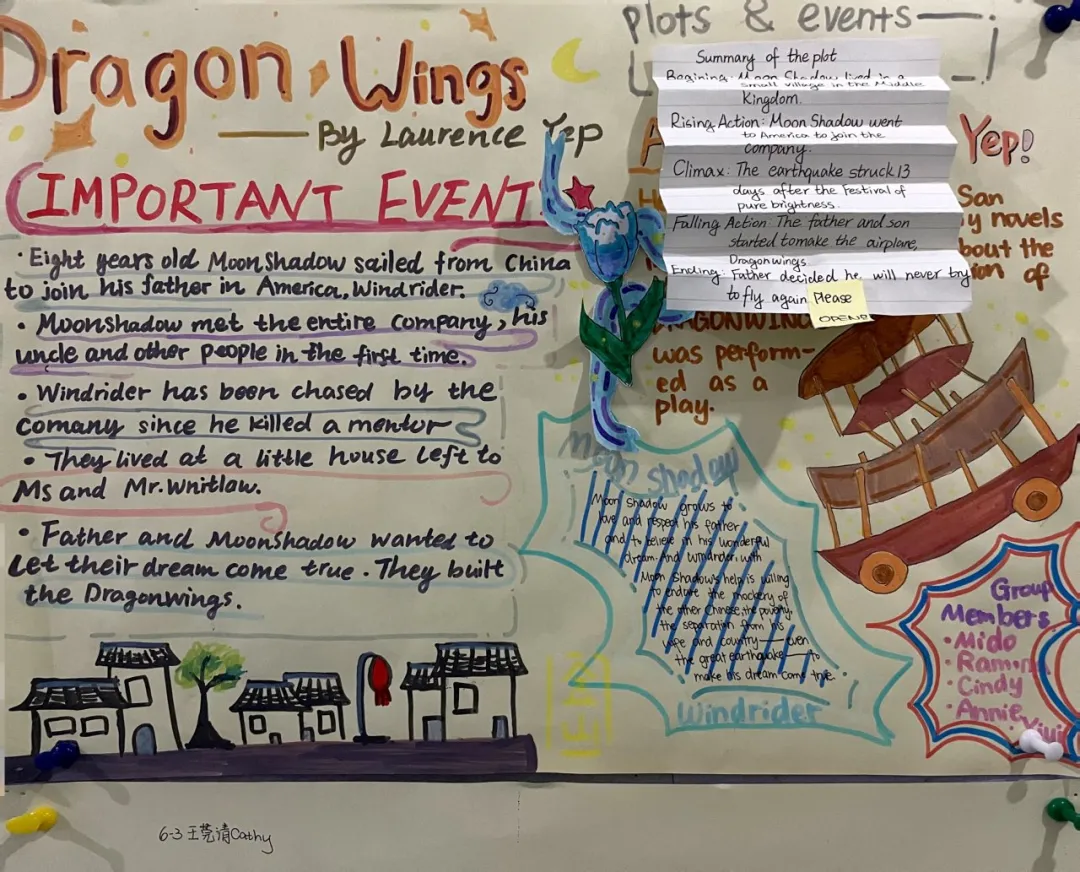 Dragon Wings
By Laurence Yep
IMPORTANT EVENT
· Eight years old MoonShadow sailed from China
to join his father in America, Windrider.
· MoonShadow met the entire company, his
uncle and other people in the first time.
· Windrider has been chased by the
comany since he killed a mentor
· They lived at a little house left to
Ms and Mr.Whitlaw.
· Father and MoonShadow wanted to
let their dream come true. They built
the Dragonwings.
plots & events
Summary of the plot
Begining: Moon Shadow lived in a
small village in the Middle
Kingdom.
Rising Action: Moon Shadow went
to America to join the
company.
Climax: The earthquake struck 13
days after the festival of
pure brightness.
Falling Action: The father and son
started to make the airplane,
Dragonwings.
Ending: Father decided he will never try
to fly again.
Please
OPEN!
Yep!
San
y novels
bout the
ion of
DRAGONWING
was perform-
ed as a
play.
Moon Shadow
Moon Shadow grows to
love and respect his father
and to believe in his wonderful
dream. And Windrider, with
Moon Shadow's help is willing
to endure the mockery of
the other Chinese, the poverty,
the separation from his
wife and country—even
the great earthquake—to
make his dream come true.
Windrider
Group
Members
· Mido
· Ramon
· Cindy
· Annie
Vivi
6-3 王莞清Cathy